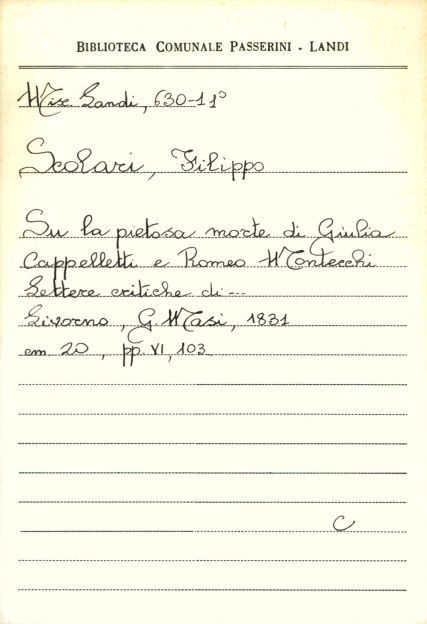 BIBLIOTECA COMUNALE PASSERINI - LANDI
Misc. Landi, 630-11°
Scolari, Filippo
Su la pietosa morte di Giulia
Cappelletti e Romeo Montecchi
Lettere critiche di ---
Livorno, G. Masi, 1831
cm 20, pp. VI, 103
C